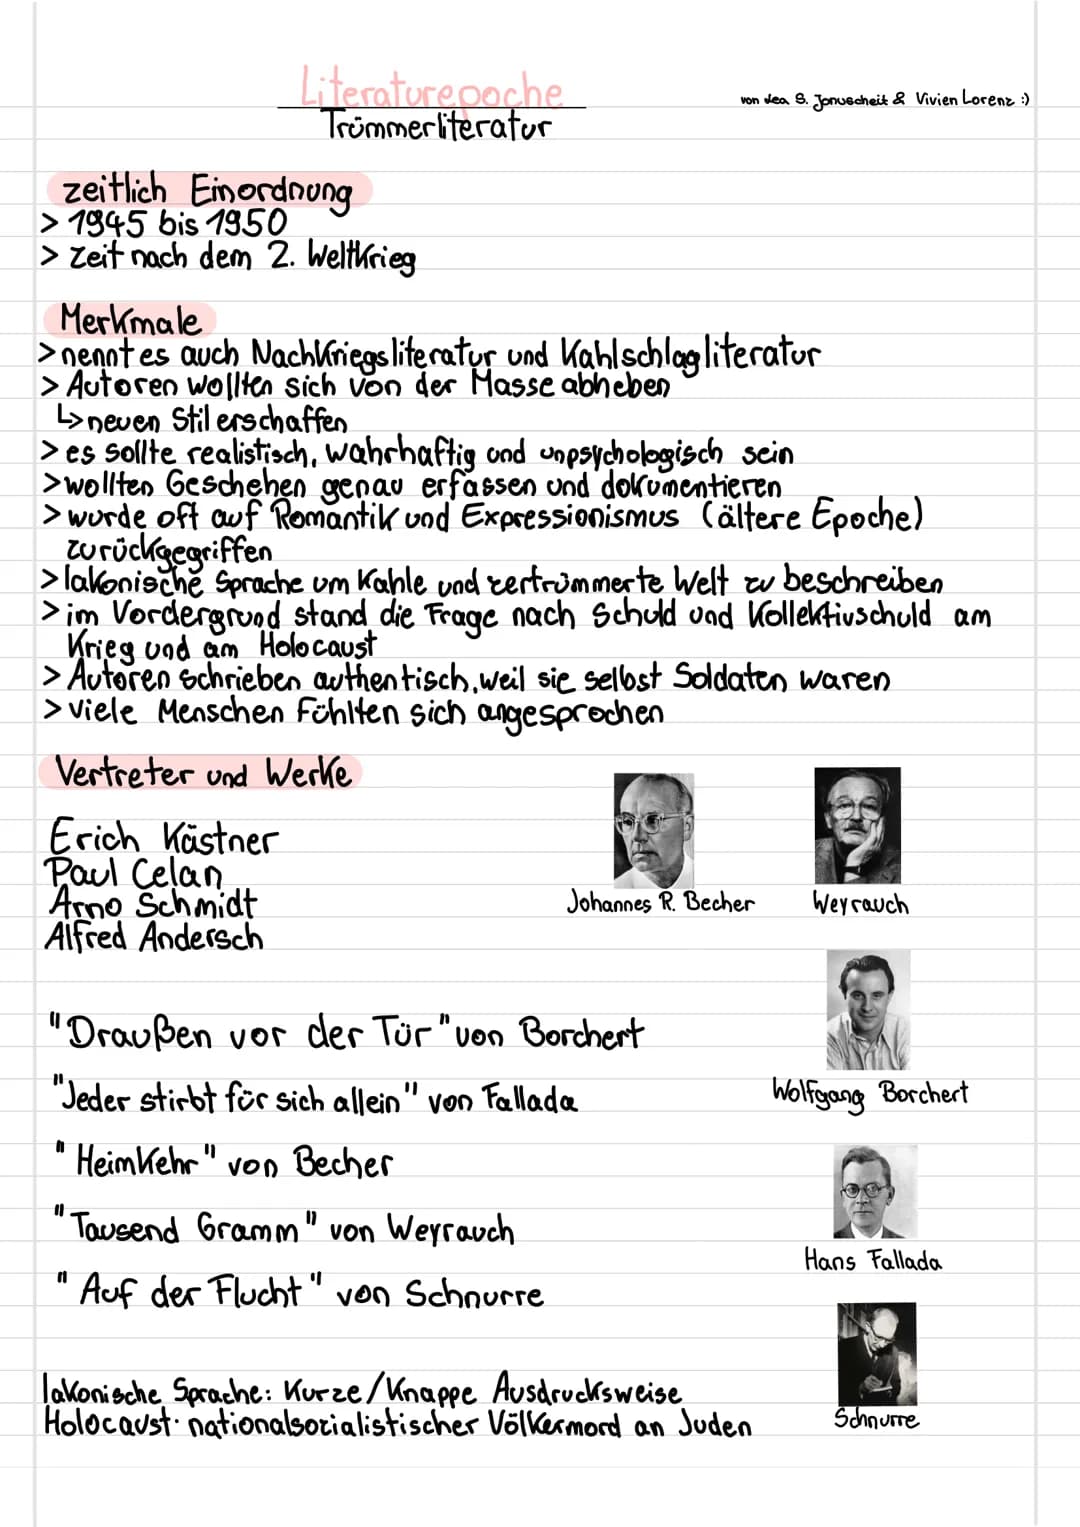 Literaturepoche
von Jea S. Jonuscheit & Vivien Lorenz :)
Trümmerliteratur
zeitlich Einordnung
> 1945 bis 1950
> Zeit nach dem 2. Weltkrieg
Merkmale
> nennt es auch Nachkriegsliteratur und Kahlschlagliteratur
> Autoren wollten sich von der Masse abheben
↳ neuen Stil erschaffen
> es sollte realistisch, wahrhaftig und unpsychologisch sein
> wollten Geschehen genau erfassen und dokumentieren
> wurde oft auf Romantik und Expressionismus (ältere Epoche)
zurückgegriffen
> lakonische Sprache um Kahle und zertrümmerte Welt zu beschreiben
> im Vordergrund stand die Frage nach Schuld und Kollektivschuld am
Krieg und am Holocaust
> Autoren schrieben authentisch, weil sie selbst Soldaten waren
> viele Menschen fühlten sich angesprochen
Vertreter und Werke
Erich Kästner
Paul Celan
Arno Schmidt
Alfred Andersch
Johannes R. Becher
Weyrauch
"Draußen vor der Tür" von Borchert
"Jeder stirbt für sich allein" von Fallada
Wolfgang Borchert
"Heimkehr" von Becher
"Tausend Gramm" von Weyrauch
Hans Fallada
"Auf der Flucht" von Schnurre
lakonische Sprache: Kurze/Knappe Ausdrucksweise
Holocaust: nationalsozialistischer Völkermord an Juden
Schnurre